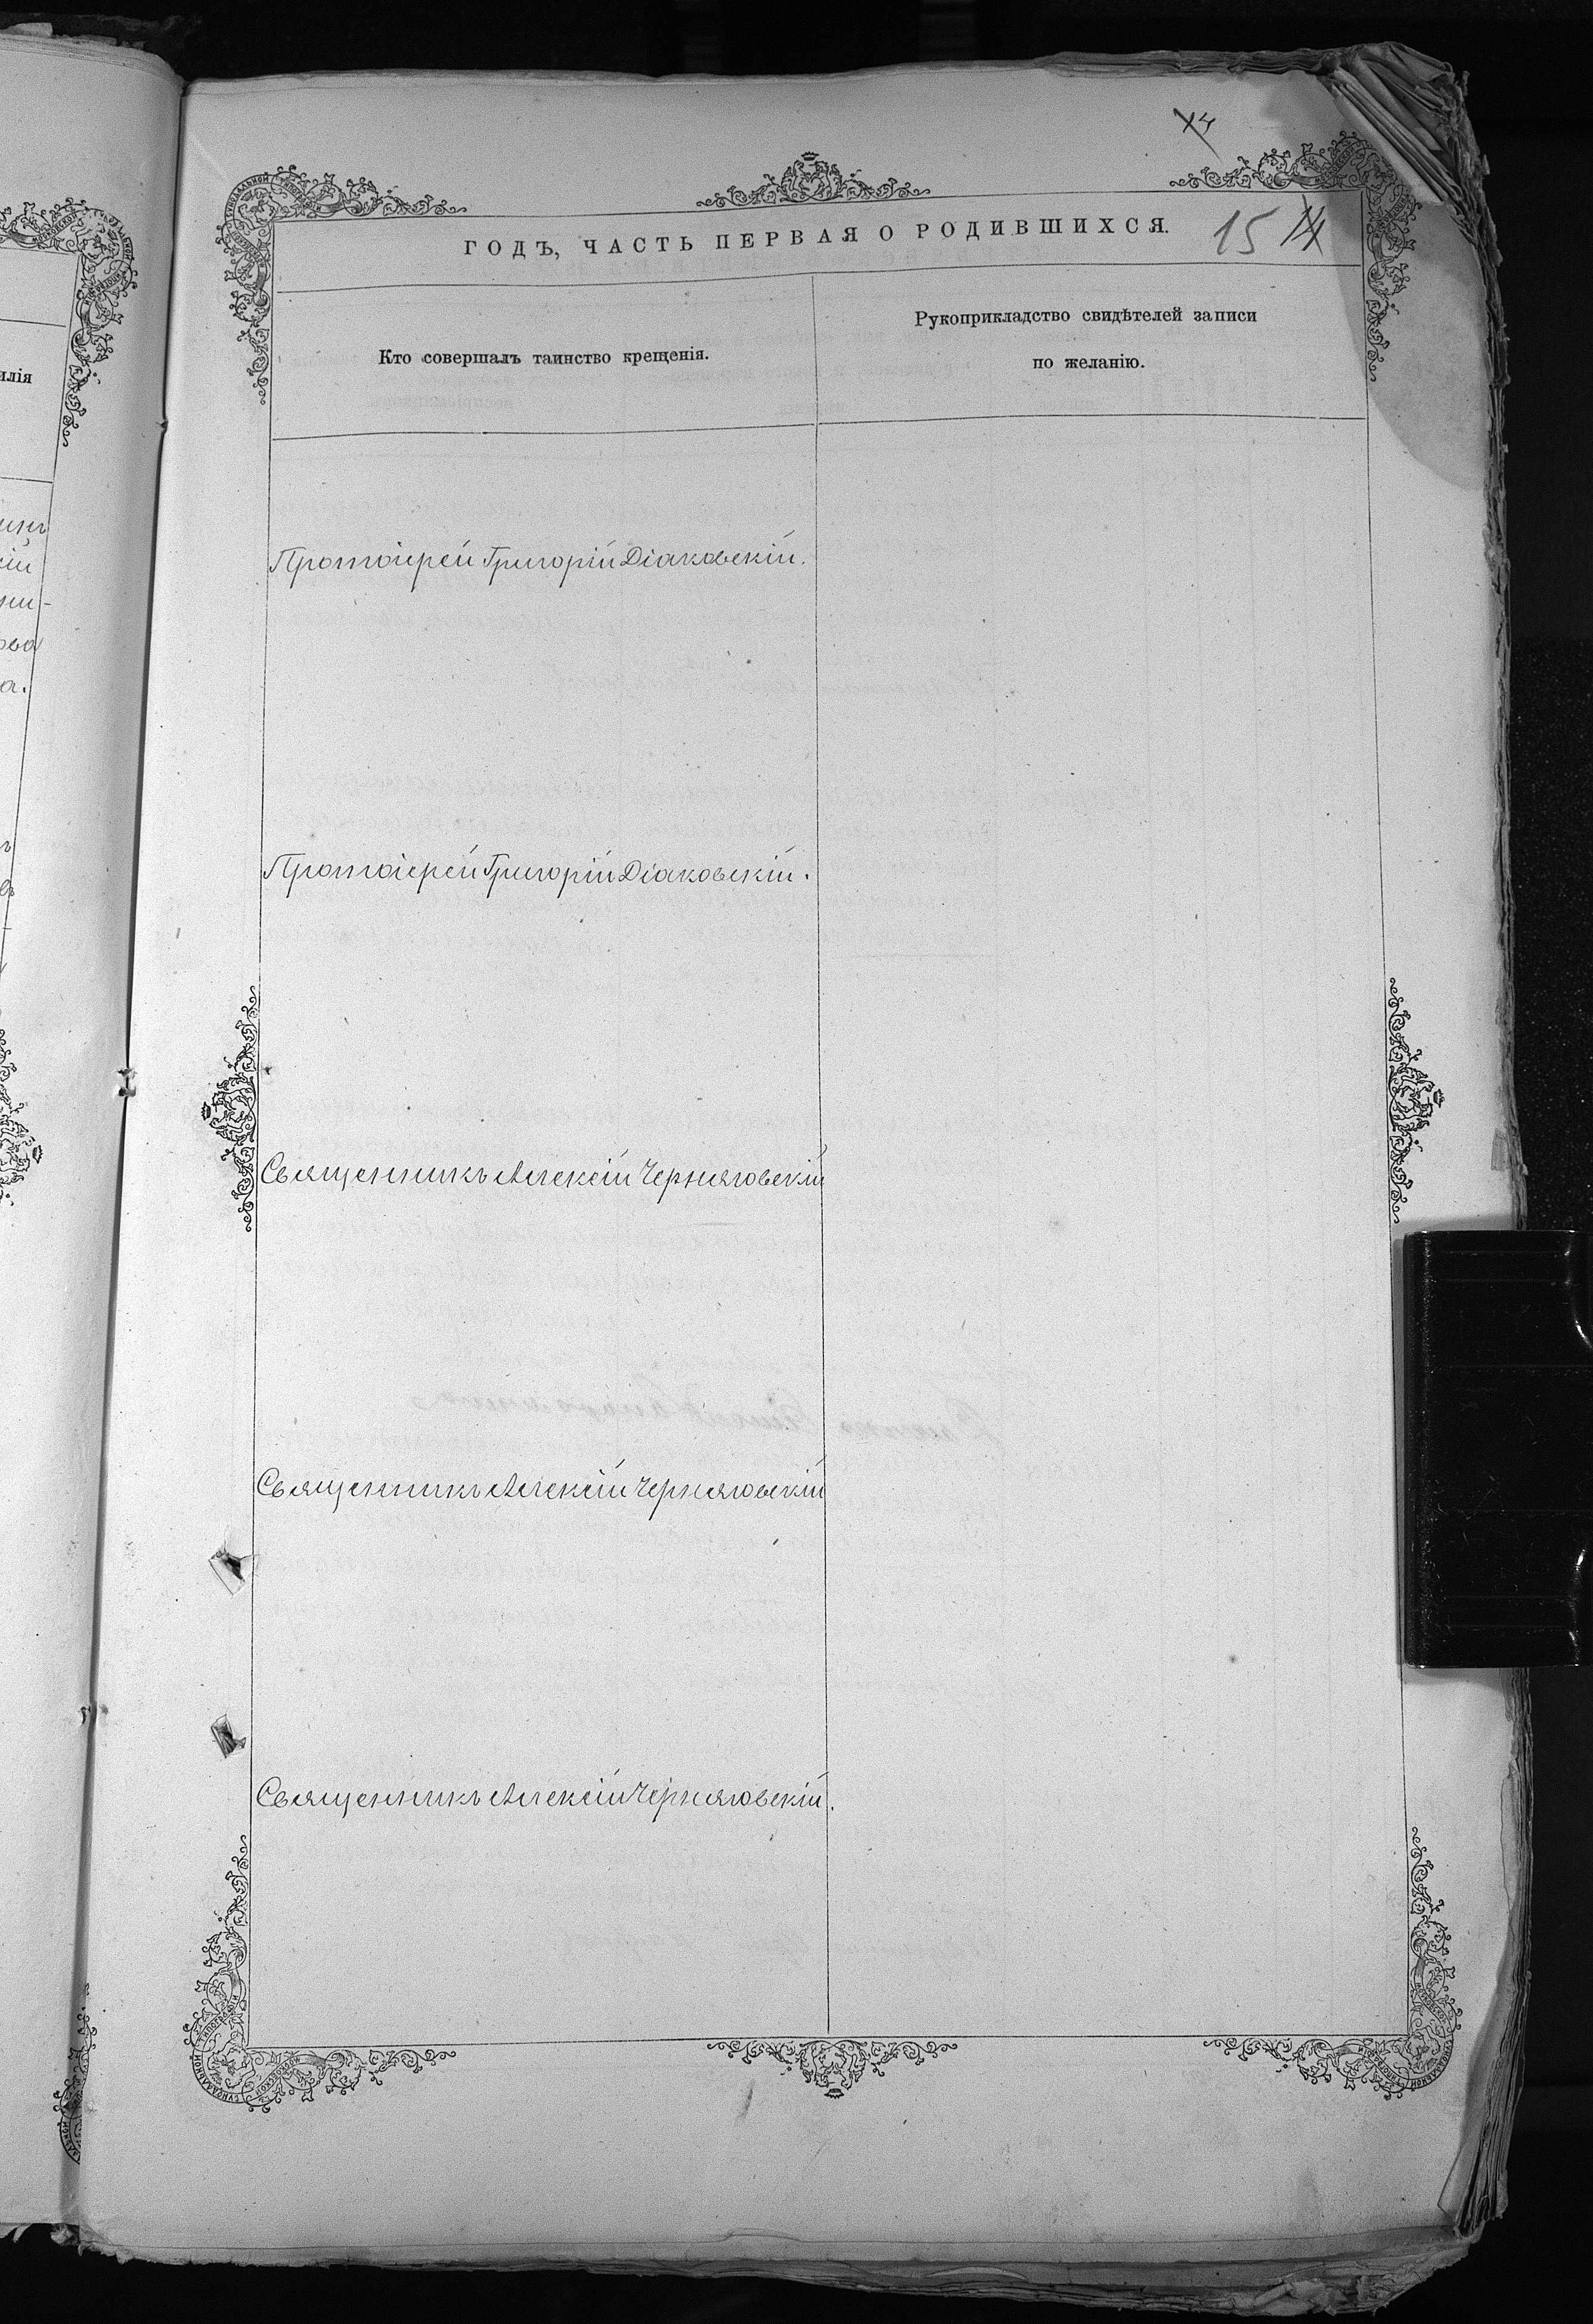 14
ГОДЪ, ЧАСТЬ ПЕРВАЯ О РОДИВШИХСЯ.
15 14
Кто совершалъ таинство крещенія.
Рукоприкладство свидѣтелей записи
по желанію.
илія
Протоіерей Григорій Діаковскій.
Протоіерей Григорій Діаковскій.
Священникъ Алексій Черняговскій
Священникъ Алексій Черняговскій
Священникъ Алексій Черняговскій.